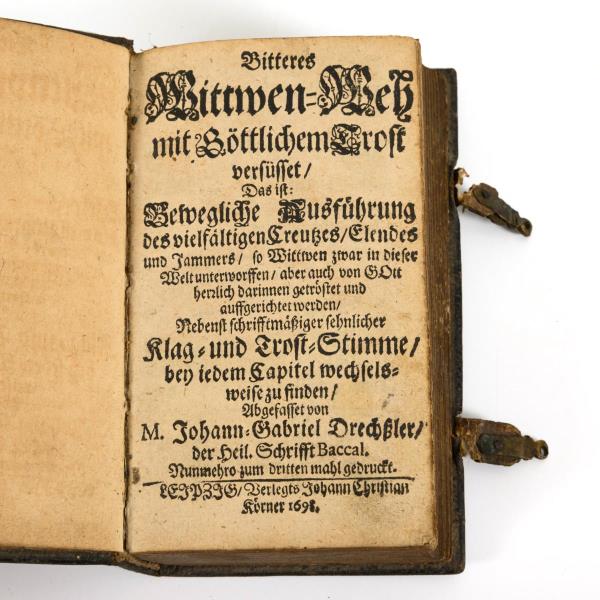 Bitteres
Wittwen-Weh
mit Göttlichem Trost
versüsset/
Das ist:
Bewegliche Ausführung
des vielfältigen Creutzes/Elendes
und Jammers/ so Wittwen zwar in dieser
Welt unterworffen/ aber auch von GOtt
herzlich darinnen getröstet und
auffgerichtet werden/
Nebenst schrifftmäßiger sehnlicher
Klag- und Trost-Stimme/
bey iedem Capitel wechsels-
weise zu finden/
Abgefasset von
M. Johann-Gabriel Drechßler/
der Heil. Schrifft Baccal.
Nunmehro zum dritten mahl gedruckt.
LEIPZIG/ Verlegts Johann Christian
Körner 1698.